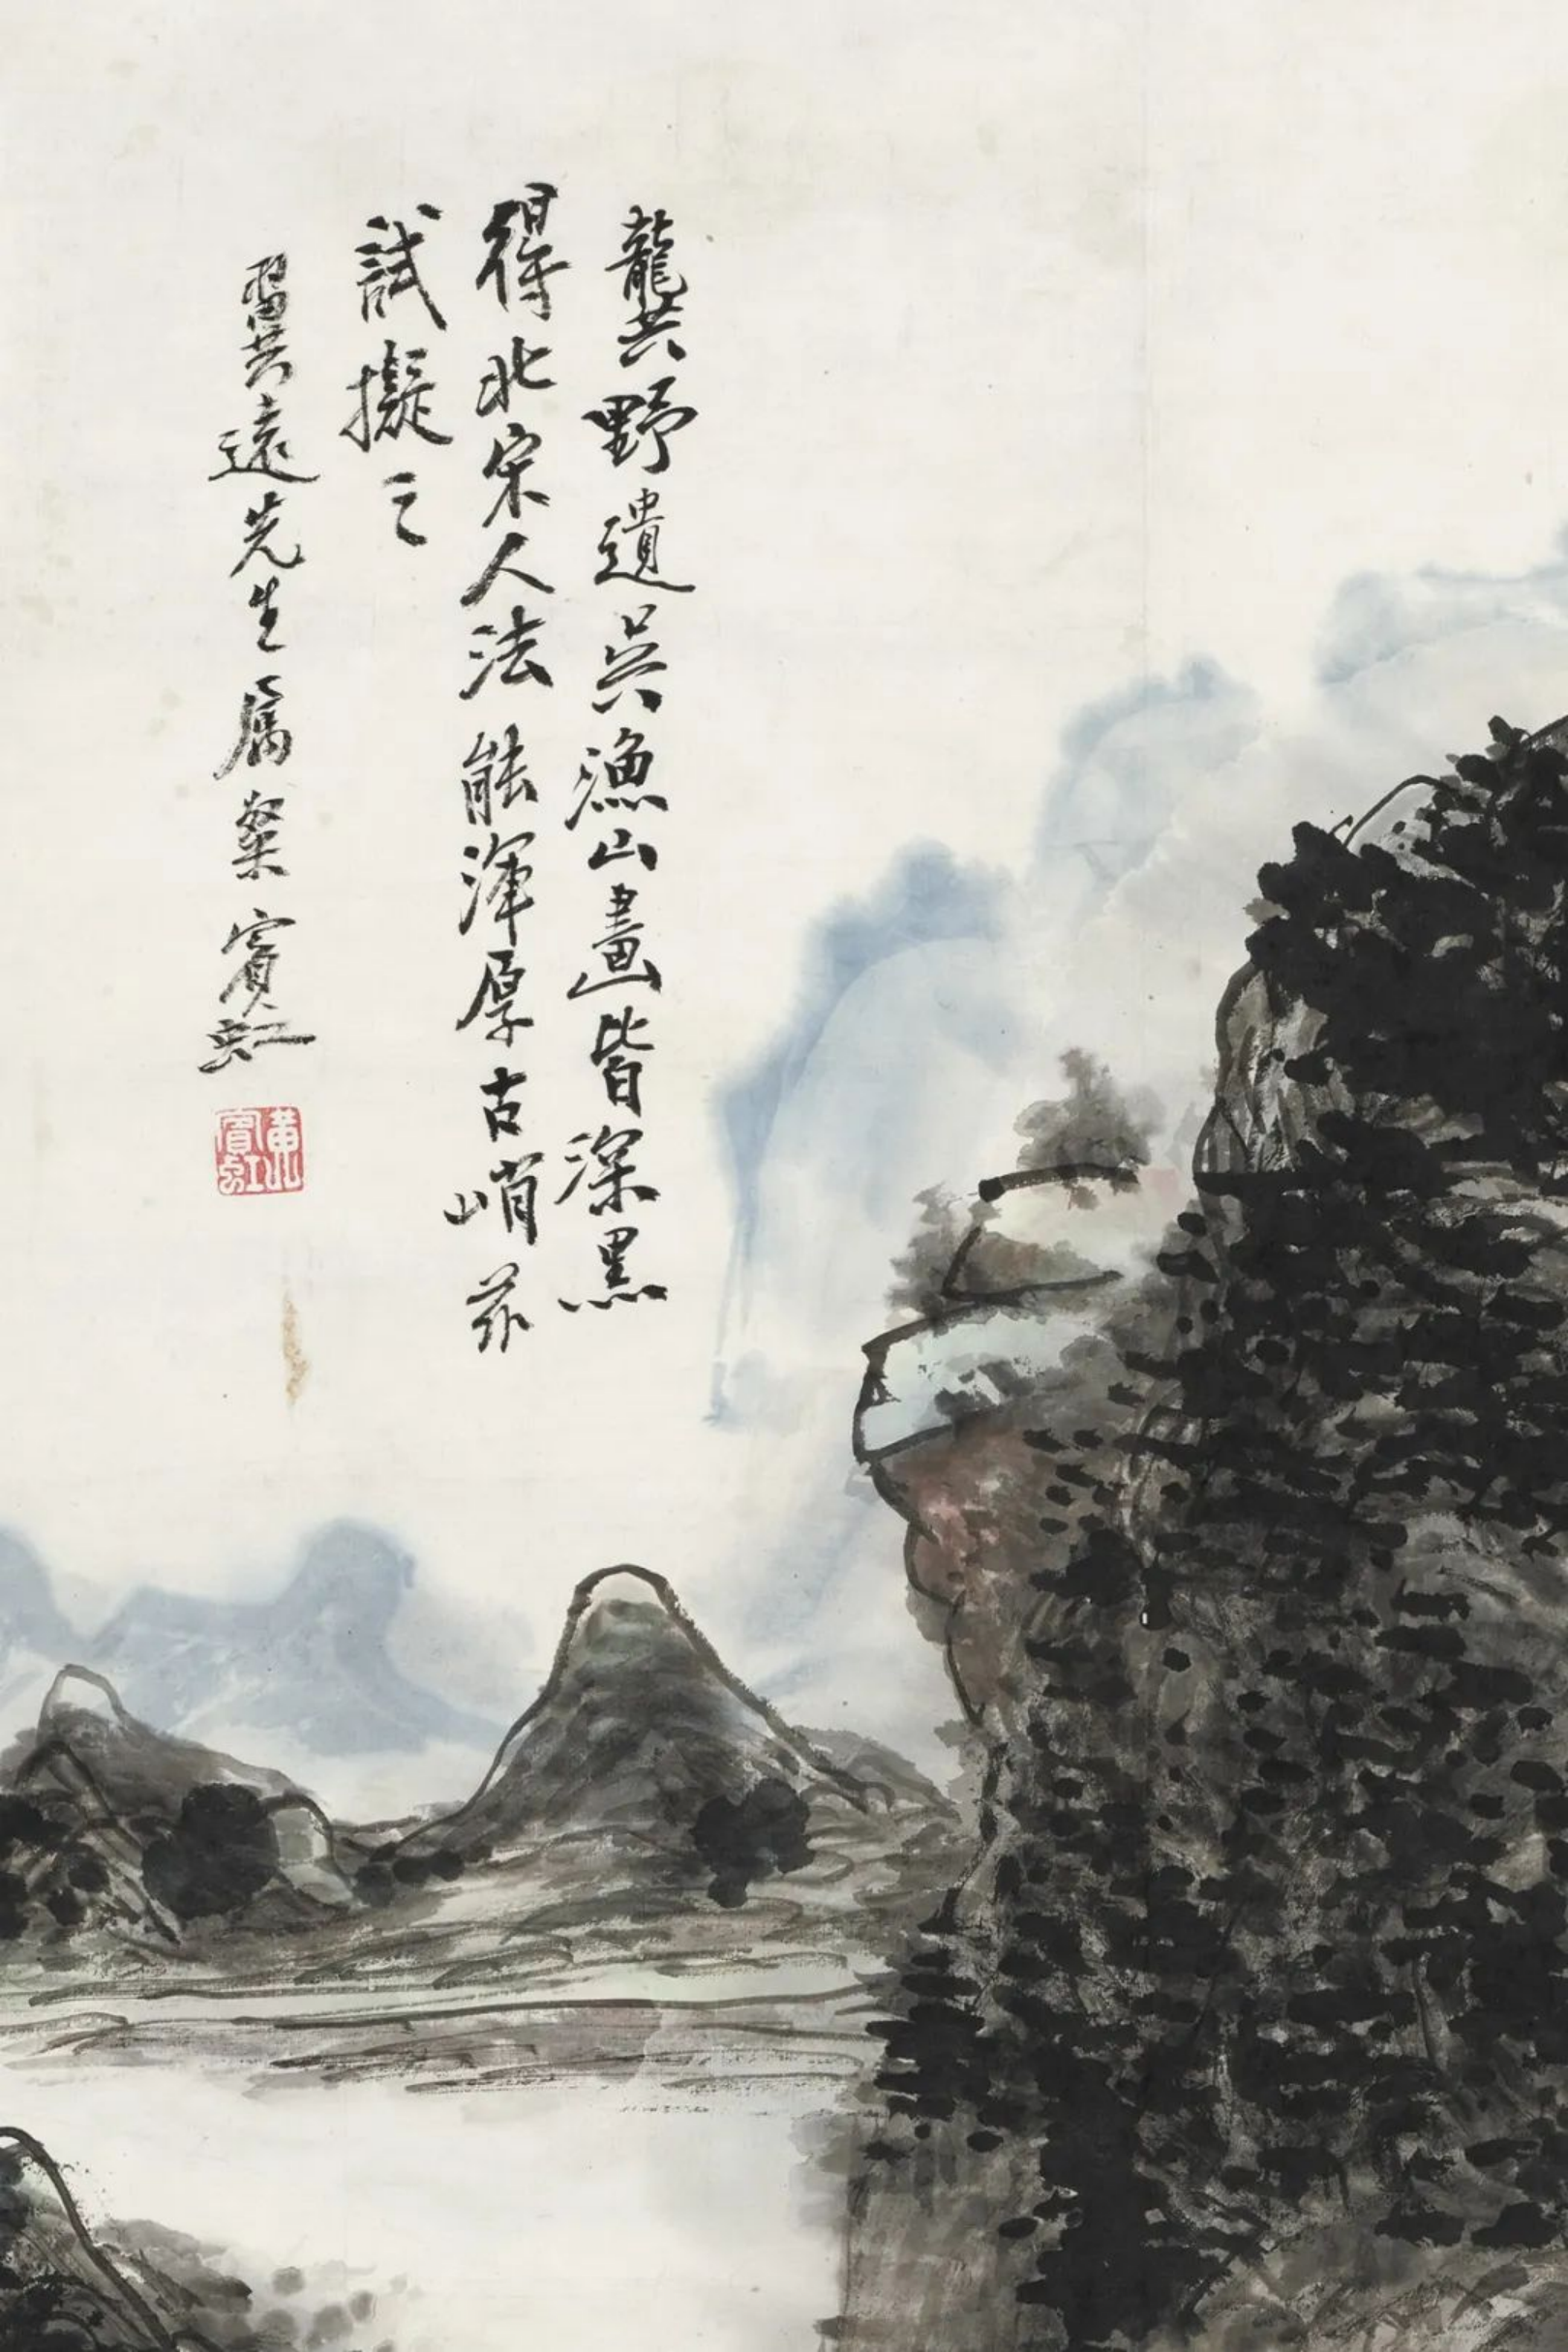 龔野遺吳漁山畫皆深黑
得北宋人法能渾厚古峭茲
試擬之
翼遠先生屬粲 賓虹
黃賓虹